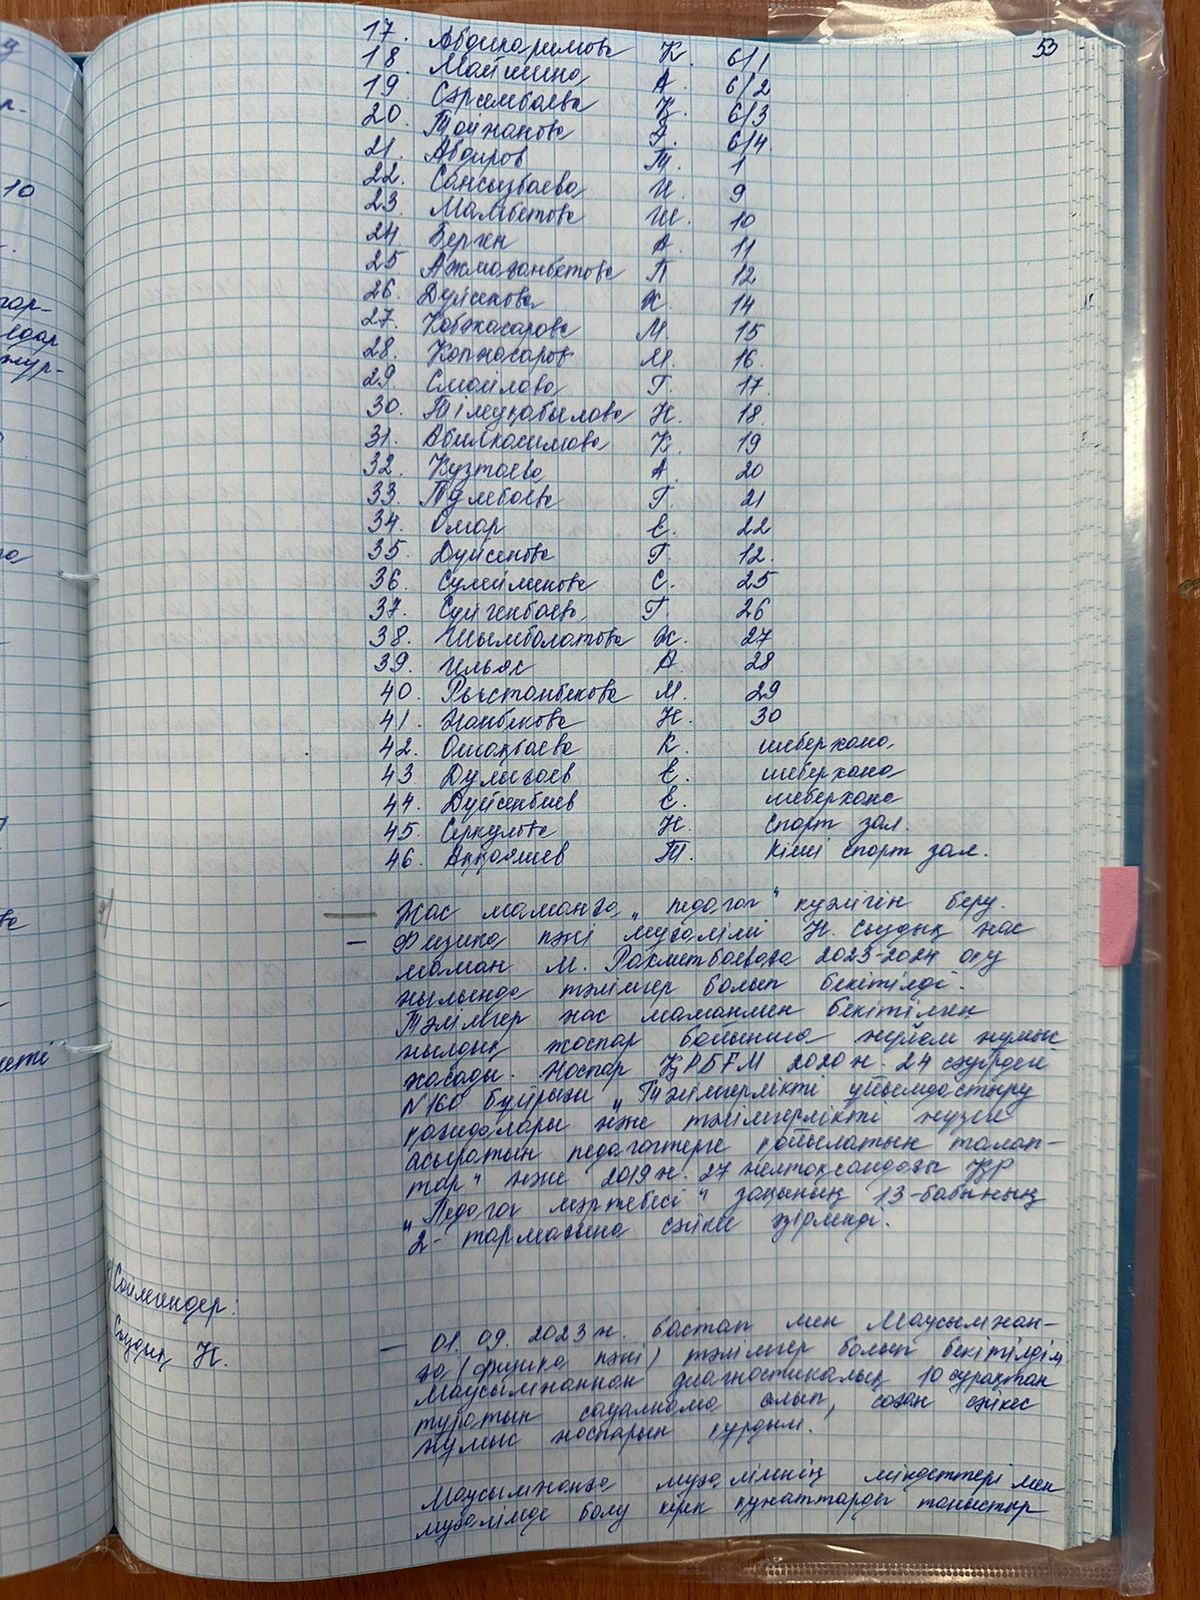 53
17. Абдикаримова К. 6/1
18. Маймина А. 6/2
19 Сарымбаева К. 6/3
20. Тойжанова Г. 6/4.
21. Абдиров Т. 1
22. Сансызбаева И. 9
23. Мамбетова Ш. 10
24 Берген А. 11
25 Ажмаганбетова П 12
26. Дуйсенова Ж. 14
27. Кобжасарова М. 15
28. Копжасаров М. 16
29. Смайлова Г. 17
30. Тілеуқабылова Н. 18
31. Абилкасимова К. 19
32. Кузтаева А. 20
33. Тулебаева Г. 21
34. Омар Е. 22
35. Дуйсенова Г. 12.
36. Сулейменова С. 25
37. Суйгенбаева Г. 26
38. Шымболатова Ж. 27
39. Ильяс А. 28
40. Рыстанбекова М. 29
41. Жанбекова Н. 30
42. Ошақбаева К. шеберхана
43 Дулығаев Е. шеберхана
44. Дуйсенбиев Е. шеберхана
45. Серкулова Н. Спорт зал.
46. Аққошиев Т. Кіші спорт зал.
— Жас маманға „педагог" куәлігін беру.
— Физика пәні мұғалімі Н. Сыздық жас
маман М. Рахметбаеваға 2023-2024 оқу
жылында тәлімгер болып бекітілді.
Тәлімгер жас маманмен бекітілген
жылдық жоспар бойынша жүйелі жұмыс
жасады. Жоспар ҚРБҒМ 2020 ж. 24 сәуірдегі
N160 бұйрығы „Тәлімгерлікті ұйымдастыру
қағидалары және тәлімгерлікті жүзеге
асыратын педагогтерге қойылатын талап-
тар" және 2019 ж. 27 желтоқсандағы ҚР
„Педагог мәртебесі" заңының 13-бабының
2- тармағына сәйкес әзірленді.
Сөйлегендер:
Сыздық Н.
— 01. 09. 2023 ж. бастап мен Маусымжан-
ға (физика пәні) тәлімгер болып бекітілдім
Маусымжаннан диагностикалық 10 сұрақтан
тұратын сауалнама алып, соған сәйкес
жұмыс жоспарын құрдым.
Маусымжанға мұғалімнің міндеттері мен
мұғалімде болу керек құжаттарды таныстыр